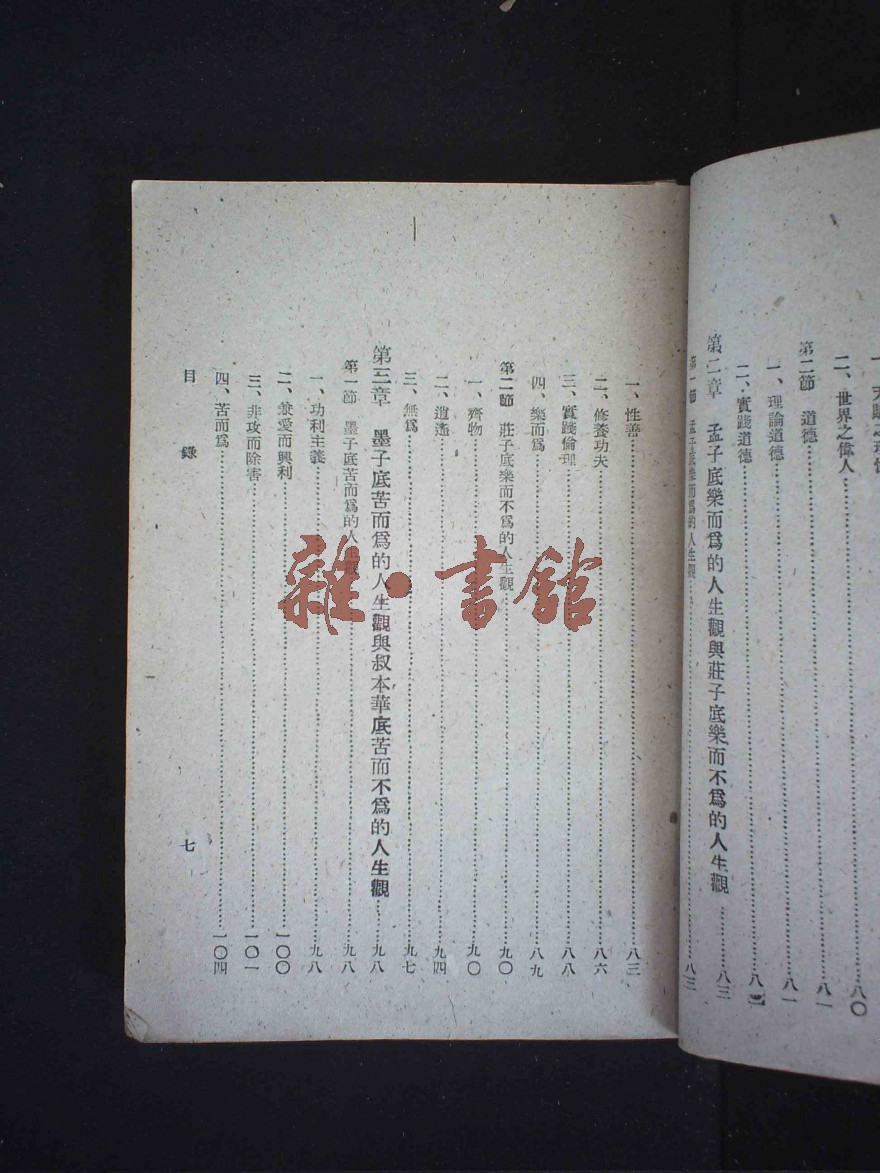 二、世界之偉人……八〇
第二節 道德……八一
一、理論道德……八一
二、實踐道德……八二
第二章 孟子底樂而爲的人生觀與莊子底樂而不爲的人生觀……八三
第一節 孟子底樂而爲的人生觀……八三
一、性善……八三
二、修養功夫……八六
三、實踐倫理……八八
四、樂而爲……八九
第二節 莊子底樂而不爲的人生觀……九〇
一、齊物……九〇
二、逍遙……九四
三、無爲……九七
第三章 墨子底苦而爲的人生觀與叔本華底苦而不爲的人生觀……九八
第一節 墨子底苦而爲的人生觀……九八
一、功利主義……九八
二、兼愛而興利……一〇〇
三、非攻而除害……一〇一
四、苦而爲……一〇四
目錄
七
雜·書館